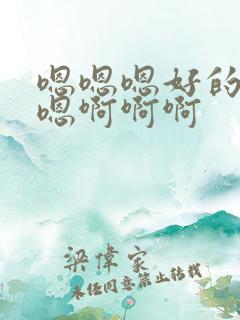 嗯嗯嗯好的
嗯啊啊啊
梁偉家
未经同意禁止转载